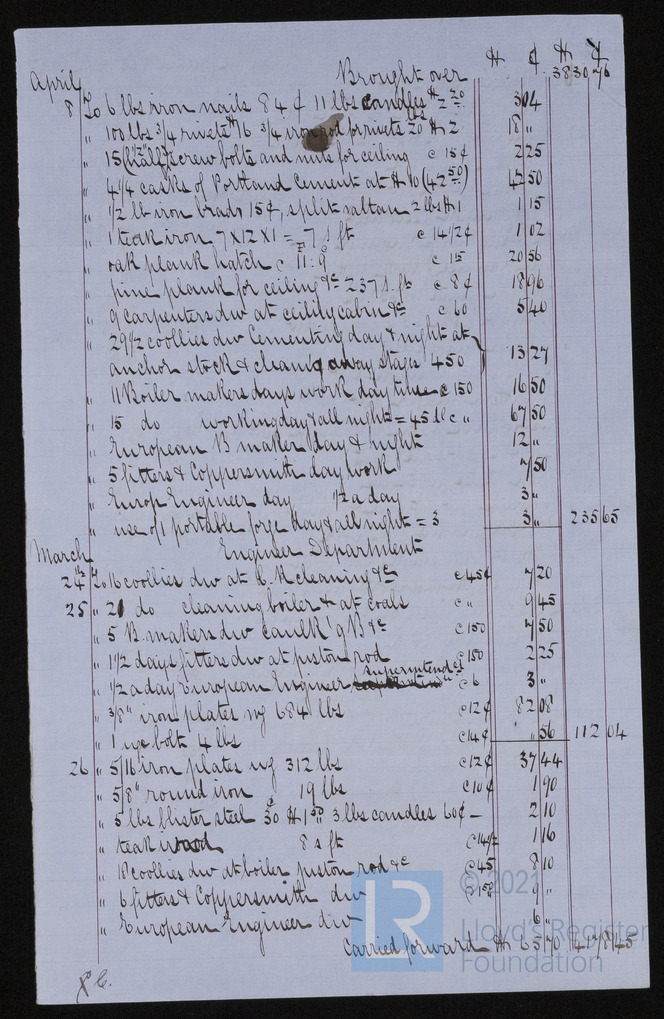 $ ¢ $ ¢
April Brought over 3830 76
8 To 6 lbs iron nails 84 ¢ 11 lbs candles $2 20 3 04
" 100 lbs 3/4 rivets $16 3/4 iron rod for rivets 20 lbs $2 18 "
" 15 screw bolts and nuts for ceiling c 15¢ 2 25
" 4 1/4 casks of Portland Cement at $10 (42 50) 42 50
" 1/2 lb iron brads 15¢, split rattan 2 lbs $1 1 15
" 1 teak iron 7 x 12 x 1 = 7 s ft c 14 1/2¢ 1 02
" oak plank hatch c 11 : 9 c 15 20 56
" pine plank for ceiling &c 237 s. ft c 8¢ 18 96
" 9 carpenters dw at ceiling cabin &c c 60 5 40
" 29 1/2 coollies dw Cementing day & night at
anchor stock & cleaning away stages 450 13 27
" 11 Boiler makers days work day time c 150 16 50
" 15 do working day & all night = 45 d c " 67 50
" European B maker day & night 12 "
" 5 fitters & Coppersmith day work 7 50
" Europ Engineer day 1/2 a day 3 "
" use of 1 portable forge day & all night = 3 3 " 235 65
March Engineer Department
24th To 16 coollies dw at E. R cleaning &c c 45¢ 7 20
25 " 21 do cleaning boiler & at coals c " 9 45
" 5 B. makers dw caulk'g B &c c 150 7 50
" 1 1/2 days fitters dw at piston rod c 150 2 25
" 1/2 a day European Engineer superintendg c 6 3 "
" 3/8" iron plates wg 684 lbs c 12¢ 82 08
" 1 eye bolt 4 lbs c 14¢ " 56 112 04
26 " 5/16 iron plates wg 312 lbs c 12¢ 37 44
" 5/8" round iron 19 lbs c 10¢ 1 90
" 5 lbs blister steel 30 ¢ $1 50 " 3 lbs candles 60¢ - 2 10
" teak wood 8 s ft c 14 1/2 1 16
" 18 coollies dw at boiler piston rod &c c 45 8 10
" 6 fitters & Coppersmith dw c 150 9 "
" European Engineer dw 6 "
Carried forward $ 65 70 4178 45
LR
© 2021
Lloyd's Register
Foundation